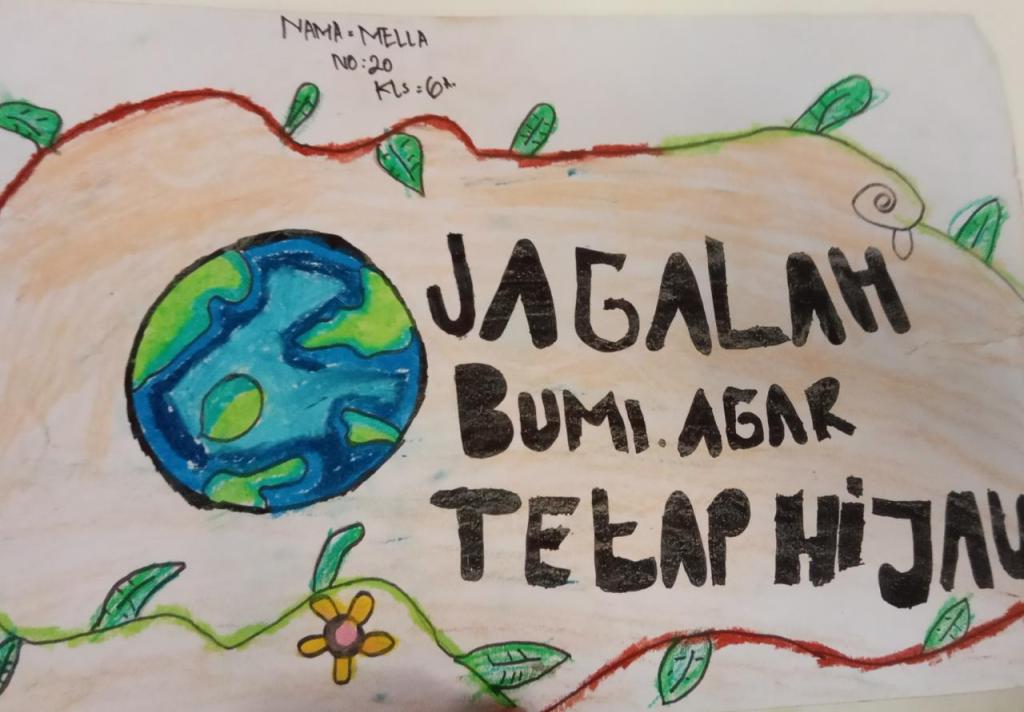 NAMA = MELLA
NO : 20
KLS = 6A.
JAGALAH
BUMI. AGAR
TETAP HIJAU